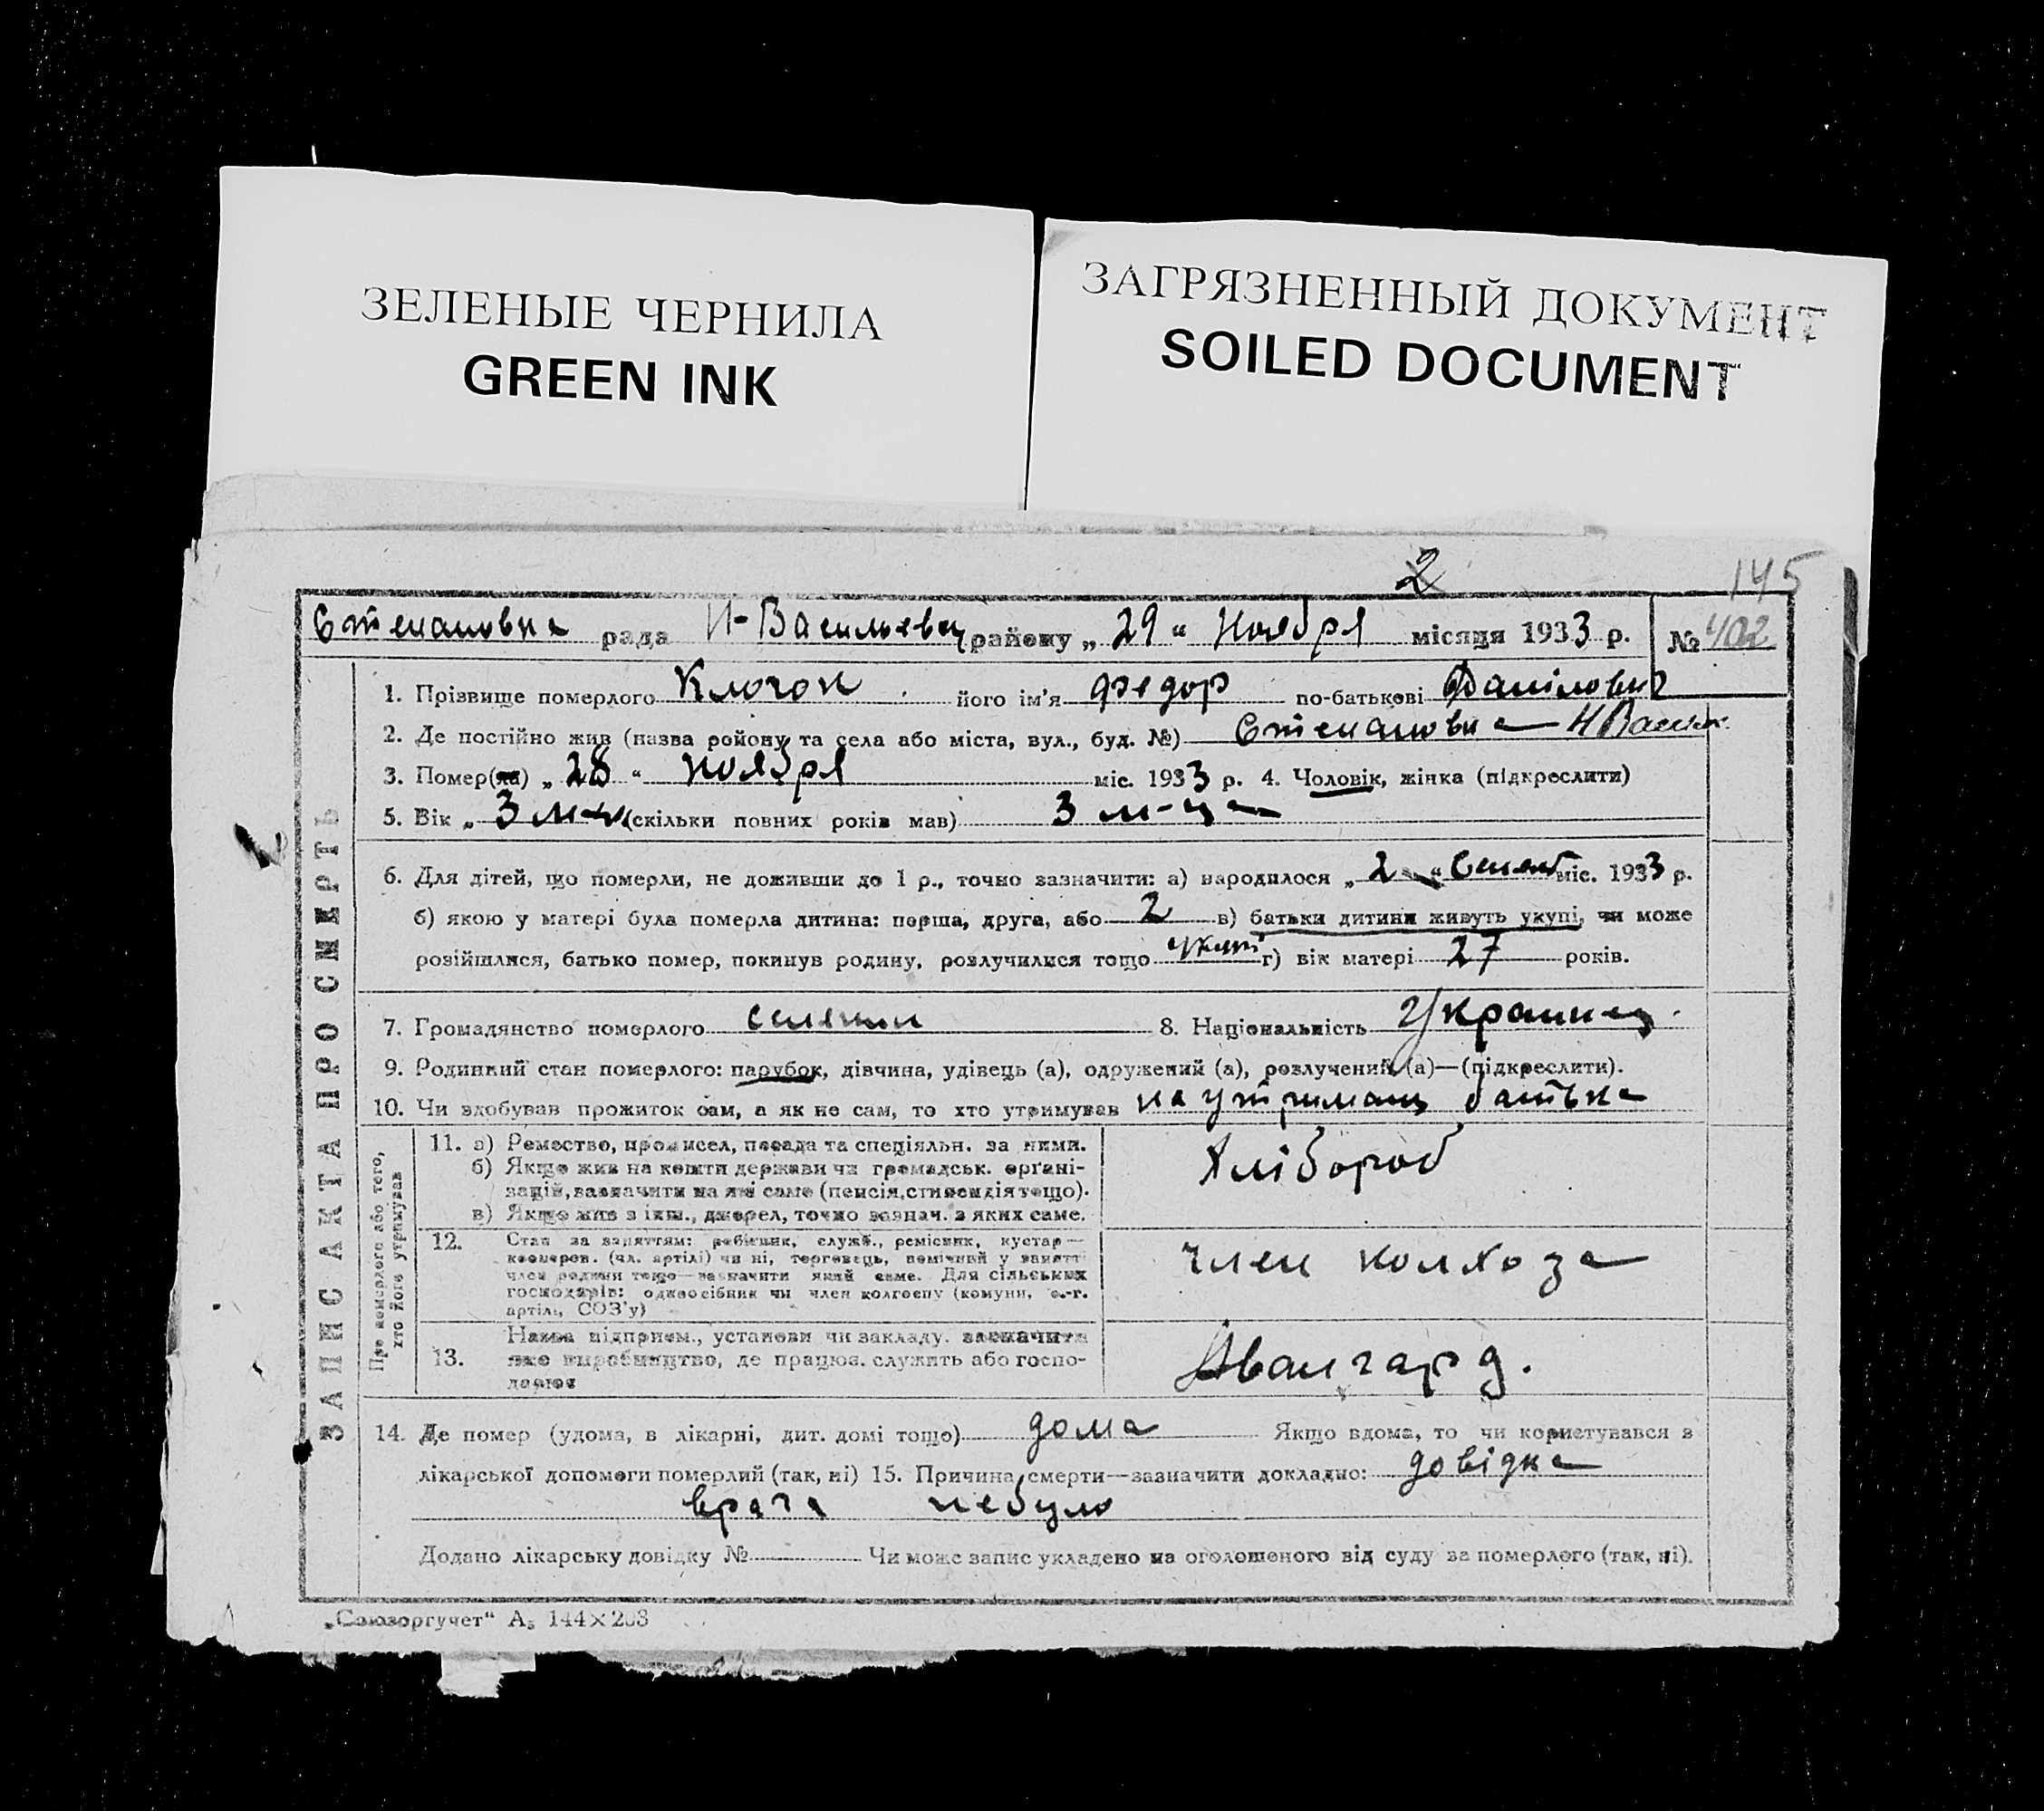 ЗЕЛЕНЫЕ ЧЕРНИЛА
GREEN INK
ЗАГРЯЗНЕННЫЙ ДОКУМЕНТ
SOILED DOCUMENT
2
145
Степановка рада Н-Васильевец району „ 29 “ Ноября місяця 1933 р. № 402
ЗАПИС АКТА ПРО СМЕРТЬ
1. Прізвище померлого Клочок його ім'я Федор по-батькові Данілович
2. Де постійно жив (назва району та села або міста, вул., буд. №) Степановка Н Васил.
3. Помер(ла) „ 28 “ ноября міс. 1933 р. 4. Чоловік, жінка (підкреслити)
5. Вік „ 3 м-ц (скільки повних років мав) 3 м-ца
6. Для дітей, що померли, не доживши до 1 р., точно зазначити: а) народилося „ 2 “ Сентяб міс. 1933 р.
б) якою у матері була померла дитина: перша, друга, або 2 в) батьки дитини живуть укупі, чи може
розійшлися, батько помер, покинув родину, розлучилися тощо укупі г) вік матері 27 років.
7. Громадянство померлого селянин 8. Національність Украинец.
9. Родинний стан померлого: парубок, дівчина, удівець (а), одружений (а), розлучений (а)—(підкреслити).
10. Чи здобував прожиток сам, а як не сам, то хто утримував на утриманц батька
Про померлого або того, хто його утримував
11. а) Ремество, промисел, посада та спеціяльн. за ними.
б) Якщо жив на кошти держави чи громадськ. органі-
зацій, зазначити на які саме (пенсія, стипендія тощо).
в) Якщо жив з інш., джерел, точно зазнач. з яких саме.
Хлібороб
12. Стан за заняттям: робітник, служб., ремісник, кустар—
кооперов. (чл. артілі) чи ні, торговець, помічний у занятті
член родини тощо—зазначити який саме. Для сільських
господарів: одноосібник чи член колгоспу (комуни, с.-г.
артіль, СОЗ'у)
Член колхоза
13. Назва підприєм., установи чи закладу, зазначити
яке виробництво, де працює, служить або госпо-
дарює
Авангард.
14. Де помер (удома, в лікарні, дит. домі тощо) дома Якщо вдома, то чи користувався з
лікарської допомоги померлий (так, ні) 15. Причина смерти—зазначити докладно: довідка
врача небуло
Додано лікарську довідку № Чи може запис укладено на оголошеного від суду за померлого (так, ні).
„Союзоргучет“ А5 144×203